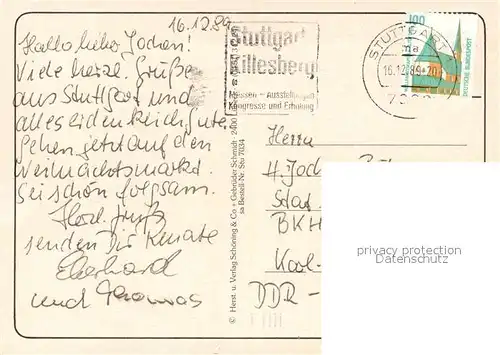 16.12.89
Hallo lieber Jochen!
Viele herzl. Grüße
aus Stuttgart und
alles
Gehen jetzt auf den
Weihnachtsmarkt.
Sei schön folgsam.
Herzl. Grüße
senden Dir Renate
Eberhard
und Thomas
Stuttgart
Killesberg
Messen - Ausstellungen
Kongresse und Erholung
STUTTGART
16.12.89-20
100
DEUTSCHE BUNDESPOST
© Herst. u. Verlag Schöning & Co + Gebrüder Schmidt · 2400
sa Bestell-Nr. Stu 7034
Herrn
H. Joch
BKH
DDR -
privacy protection
Datenschutz